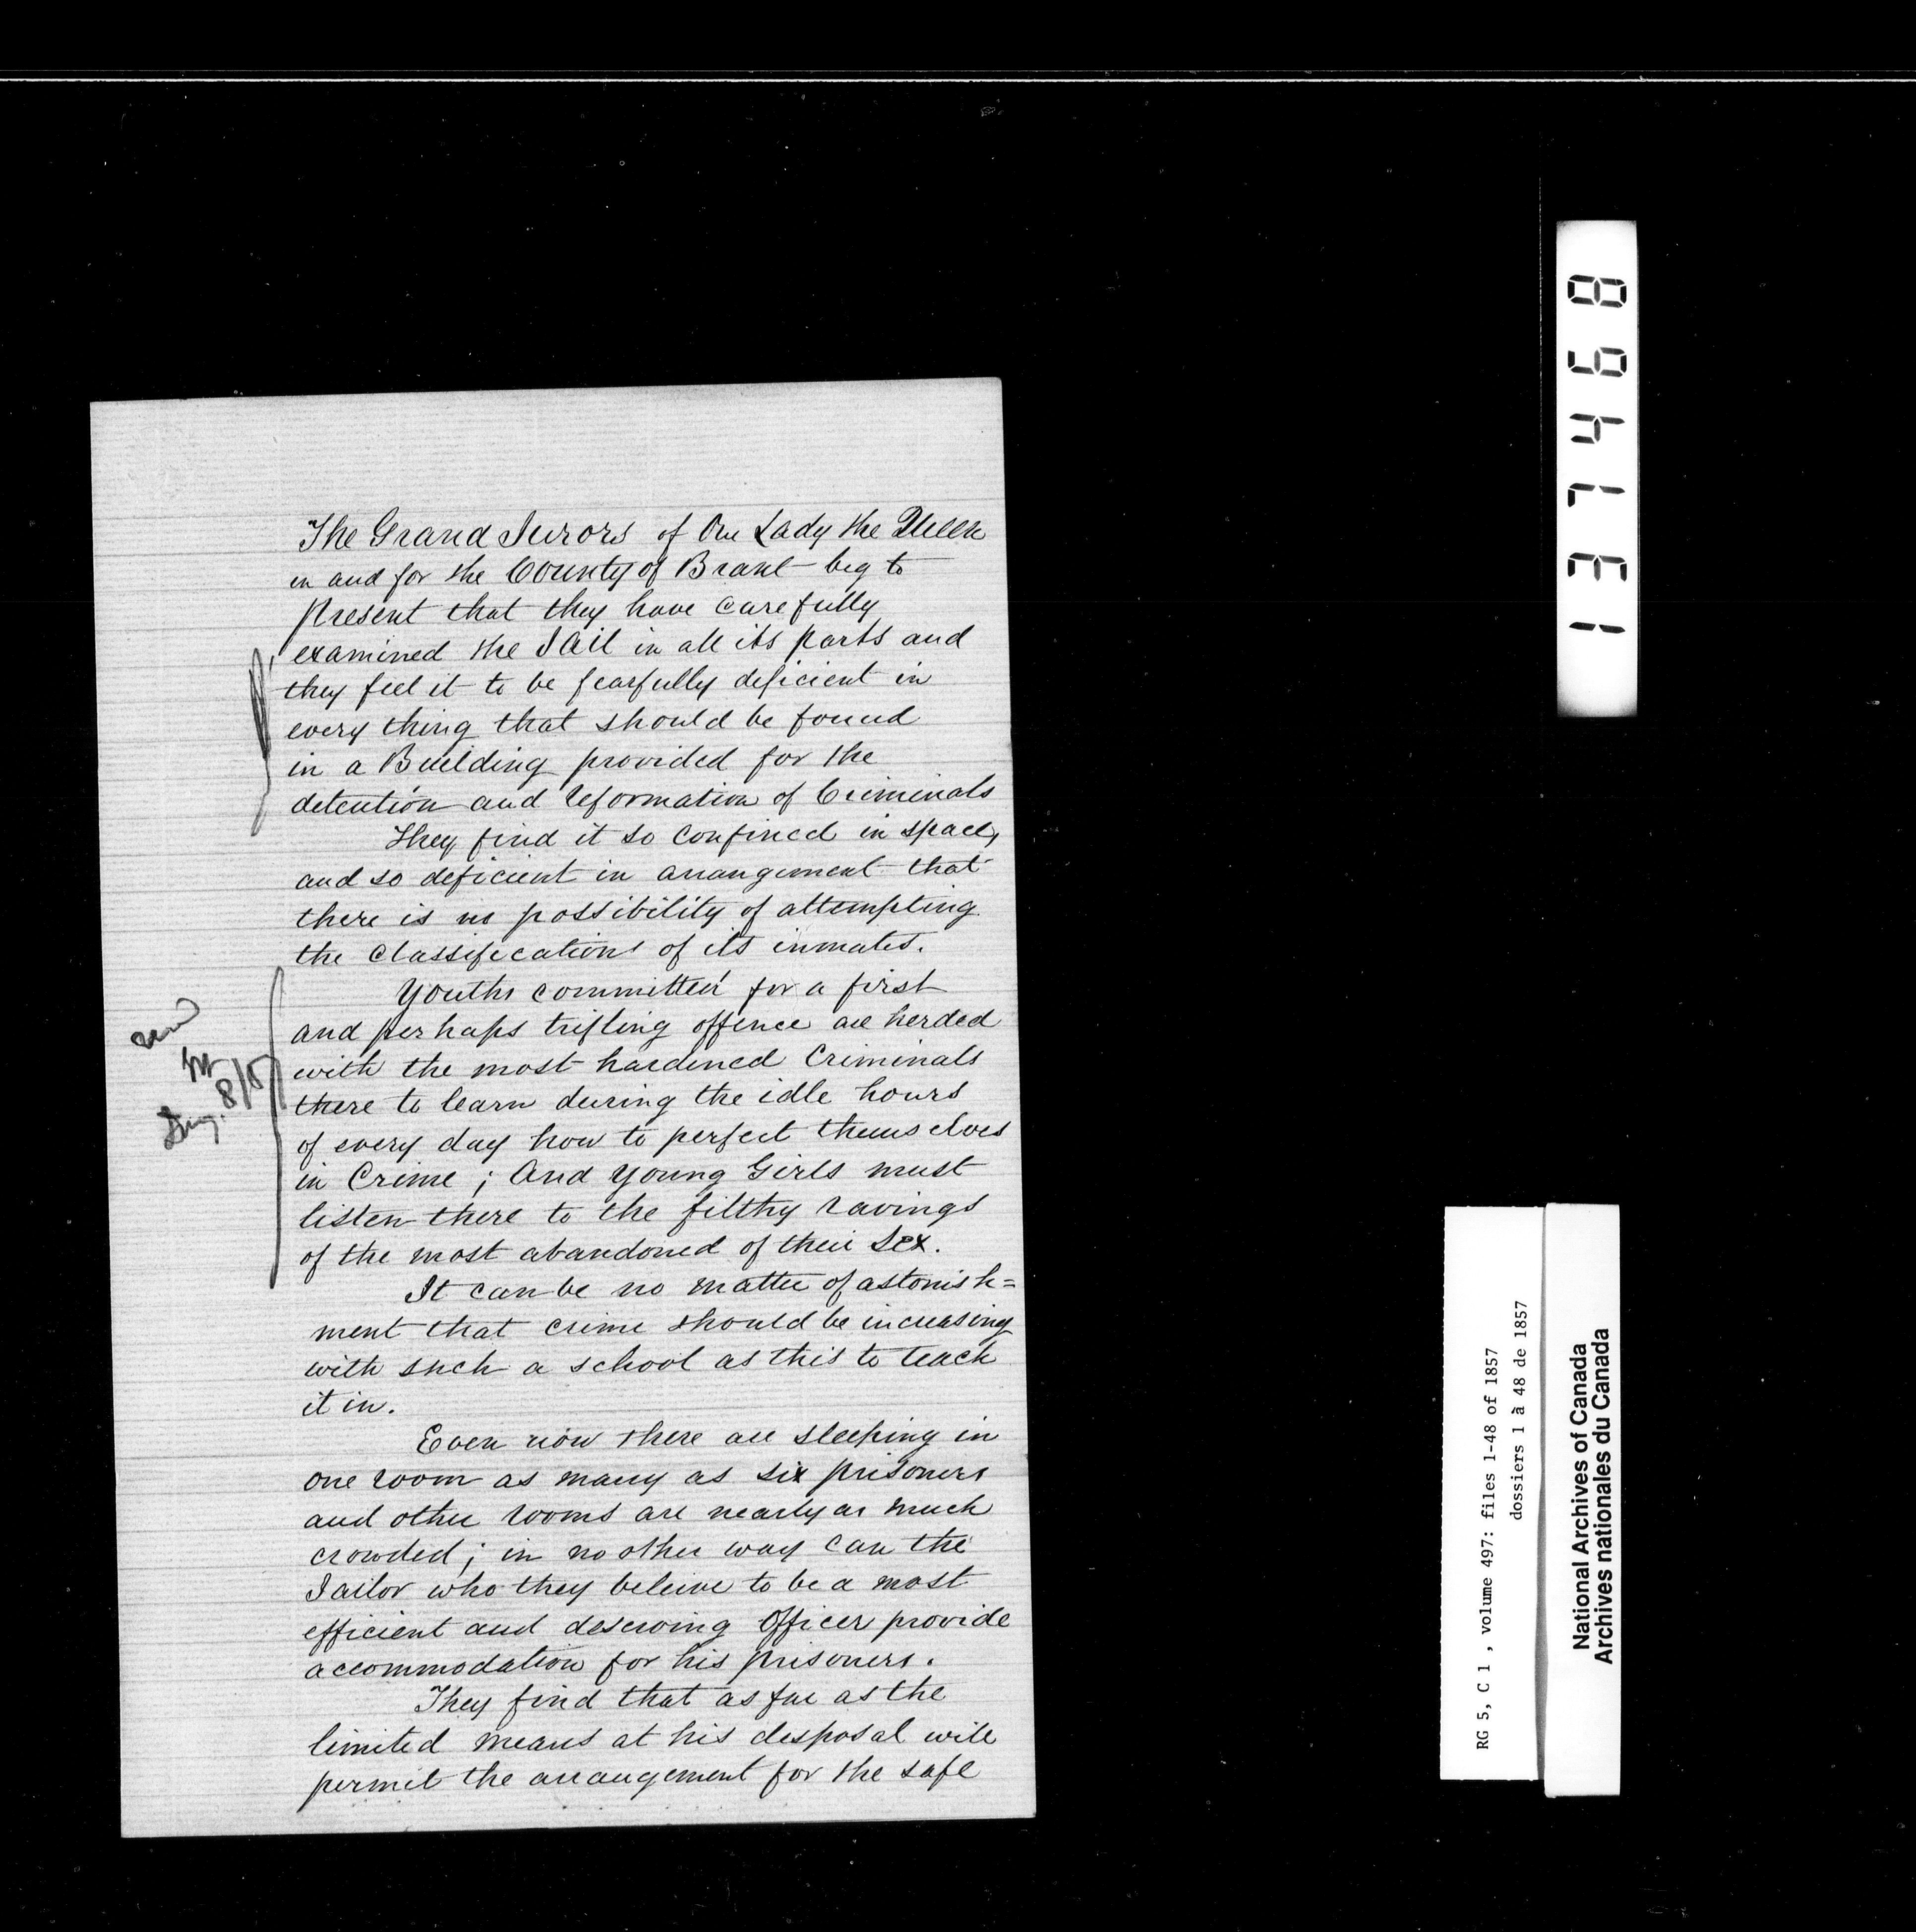 The Grand Jurors of Our Lady the Queen
in and for the County of Brant beg to
present that they have carefully
examined the Jail in all its parts and
they feel it to be fearfully deficient in
every thing that should be found
in a Building provided for the
detention and reformation of Criminals
They find it so confined in space,
and so deficient in arrangement that
there is no possibility of attempting
the classifications of its inmates.
Youths committed for a first
and perhaps trifling offence are herded
with the most hardened Criminals
there to learn during the idle hours
of every day how to perfect themselves
in Crime ; And young Girls must
listen there to the filthy ravings
of the most abandoned of their Sex.
It can be no matter of astonish=
ment that crime should be increasing
with such a school as this to teach
it in.
Even now there are sleeping in
one room as many as six prisoners
and other rooms are nearly as much
crowded ; in no other way can the
Jailor who they beleive to be a most
efficient and deserving Officer provide
accommodation for his prisoners.
They find that as far as the
limited means at his desposal will
permit the arrangement for the safe
137468
RG 5, C 1 , volume 497: files 1-48 of 1857
dossiers 1 à 48 de 1857
National Archives of Canada
Archives nationales du Canada